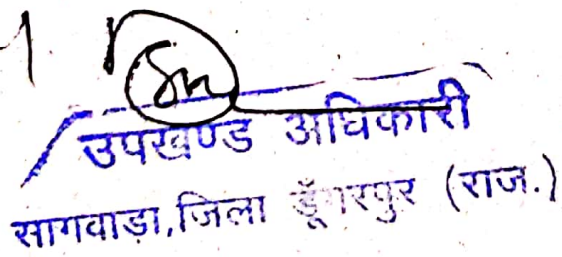 उपखण्ड अधिकारी
सागवाड़ा,जिला डूँगरपुर (राज.)